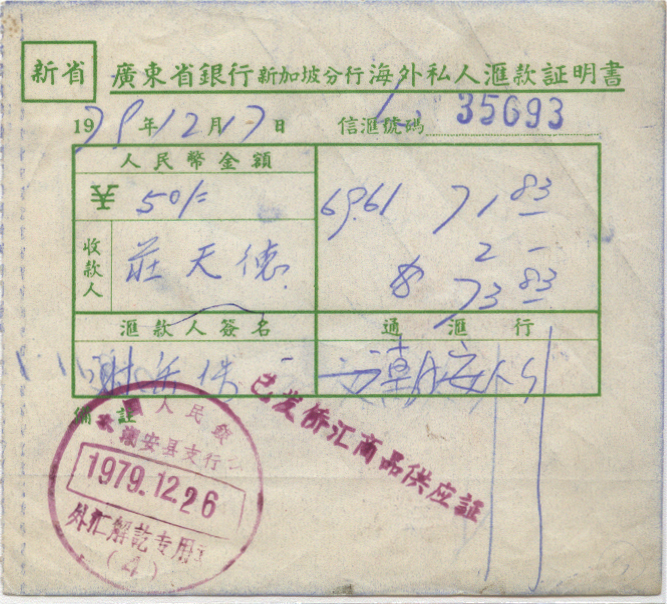 新省
廣東省銀行新加坡分行海外私人滙款証明書
1979年12月17日 信滙號碼 35693
人民幣金額
¥ 50/= 69.61 71.83
收款人 莊天德 2 —
$ 73.83
滙款人簽名 通滙行
潮安
備註
人民
潮安县支行
1979.12.26
外汇解讫专用
(4)
已发侨汇商品供应証